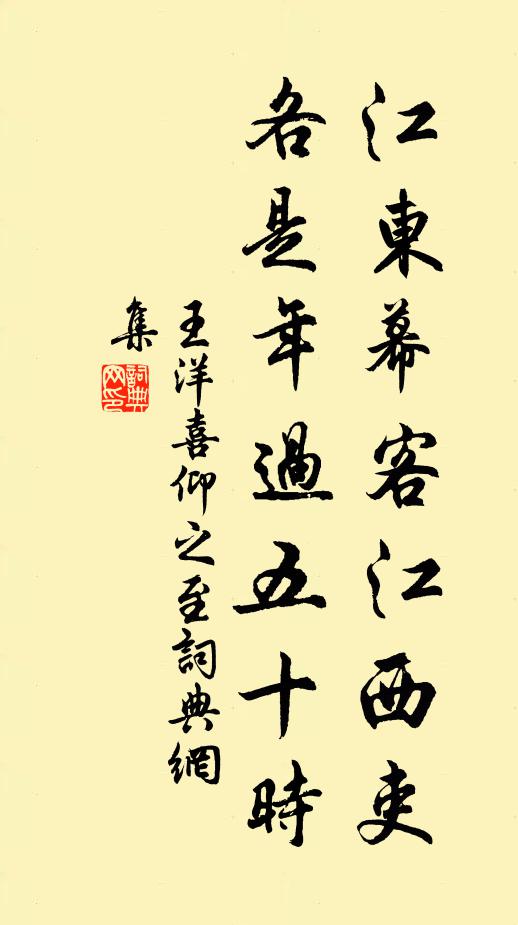 江東幕客江西吏
各是年過五十時
王洋喜仰之至詞典網
集
詞典網印